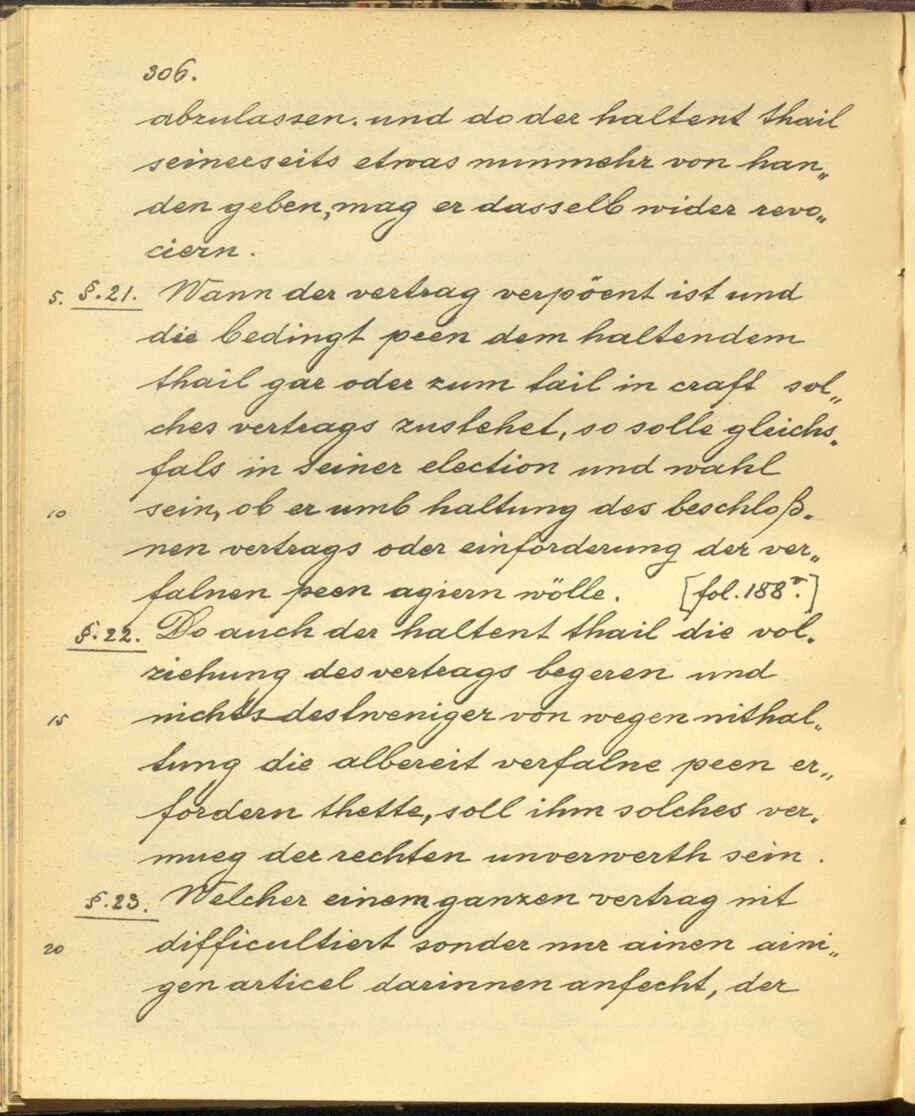 306.
abzulassen. und do der haltent thail
seinerseits etwas nunmehr von han„
den geben, mag er dasselb wider revo„
ciern.
5. §.21. Wann der vertrag verpöent ist und
die bedingt peen dem haltendem
thail gar oder zum tail in craft sol„
ches vertrags zustehet, so solle gleichs„
fals in seiner election und wahl
10 sein, ob er umb haltung des beschloß„
nen vertrags oder einforderung der ver„
falnen peen agiern wölle. [fol. 188r.]
§.22. Do auch der haltent thail die vol„
ziehung des vertrags begeren und
15 nichts destweniger von wegen nithal„
tung die albereit verfalne peen er„
fordern thette, soll ihm solches ver„
mueg der rechten unverwerth sein.
§.23. Welcher einem ganzen vertrag nit
20 difficultiert sonder nur ainen aini„
gen articel darinnen anfecht, der